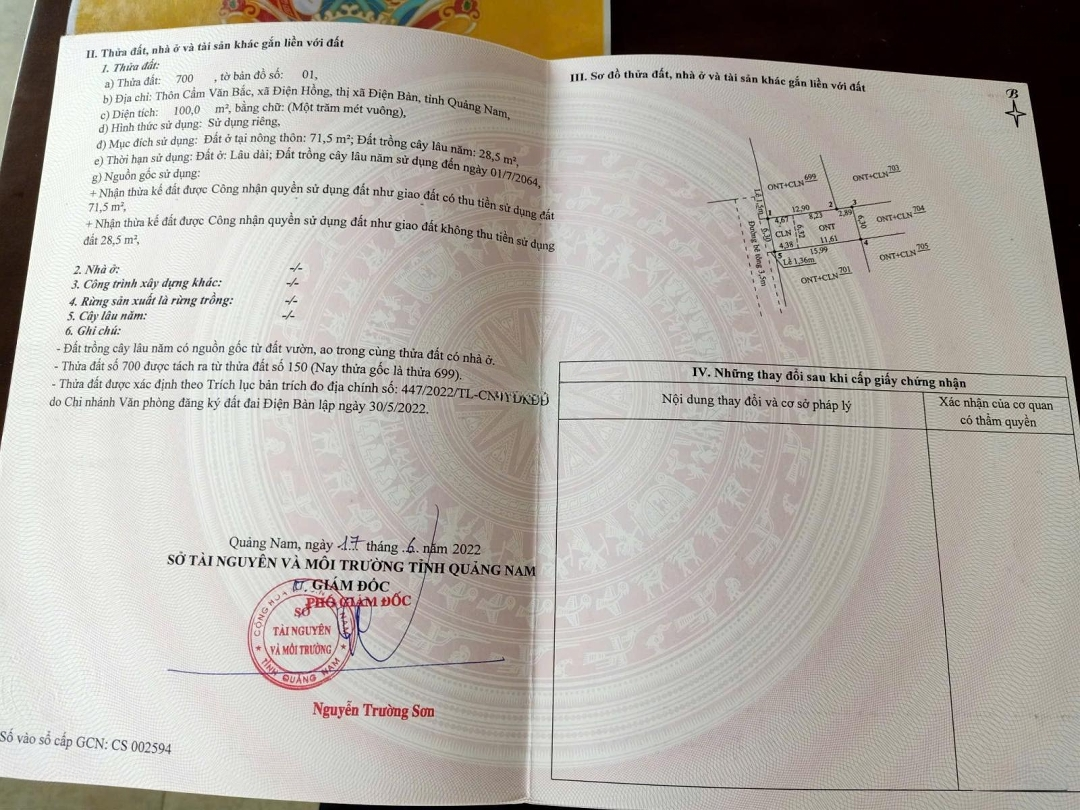 II. Thửa đất, nhà ở và tài sản khác gắn liền với đất
1. Thửa đất:
a) Thửa đất: 700 , tờ bản đồ số: 01,
b) Địa chỉ: Thôn Cẩm Văn Bắc, xã Điện Hồng, thị xã Điện Bàn, tỉnh Quảng Nam,
c) Diện tích: 100,0 m², bằng chữ: (Một trăm mét vuông),
d) Hình thức sử dụng: Sử dụng riêng,
đ) Mục đích sử dụng: Đất ở tại nông thôn: 71,5 m²; Đất trồng cây lâu năm: 28,5 m²,
e) Thời hạn sử dụng: Đất ở: Lâu dài; Đất trồng cây lâu năm sử dụng đến ngày 01/7/2064,
g) Nguồn gốc sử dụng:
+ Nhận thừa kế đất được Công nhận quyền sử dụng đất như giao đất có thu tiền sử dụng đất
71,5 m²,
+ Nhận thừa kế đất được Công nhận quyền sử dụng đất như giao đất không thu tiền sử dụng
đất 28,5 m²,
2. Nhà ở: -/-
3. Công trình xây dựng khác: -/-
4. Rừng sản xuất là rừng trồng: -/-
5. Cây lâu năm: -/-
6. Ghi chú:
- Đất trồng cây lâu năm có nguồn gốc từ đất vườn, ao trong cùng thửa đất có nhà ở.
- Thửa đất số 700 được tách ra từ thửa đất số 150 (Nay thửa gốc là thửa 699).
- Thửa đất được xác định theo Trích lục bản trích đo địa chính số: 447/2022/TL-CNVPĐKĐĐ
do Chi nhánh Văn phòng đăng ký đất đai Điện Bàn lập ngày 30/5/2022.
Quảng Nam, ngày 17 tháng 6 năm 2022
SỞ TÀI NGUYÊN VÀ MÔI TRƯỜNG TỈNH QUẢNG NAM
KT. GIÁM ĐỐC
PHÓ GIÁM ĐỐC
SỞ
TÀI NGUYÊN
VÀ MÔI TRƯỜNG
TỈNH QUẢNG NAM
Nguyễn Trường Sơn
Số vào sổ cấp GCN: CS 002594
III. Sơ đồ thửa đất, nhà ở và tài sản khác gắn liền với đất
B
ONT+CLN 699
ONT+CLN 703
Lề 1,2m
1
12,90
2
3
4,67
8,23
2,89
ONT+CLN 704
6,30
CLN
6,32
ONT
6,30
4,38
11,61
4
5
15,99
Đường bê tông 3,5m
Lề 1,36m
ONT+CLN 701
ONT+CLN 705
IV. Những thay đổi sau khi cấp giấy chứng nhận
Nội dung thay đổi và cơ sở pháp lý
Xác nhận của cơ quan
có thẩm quyền